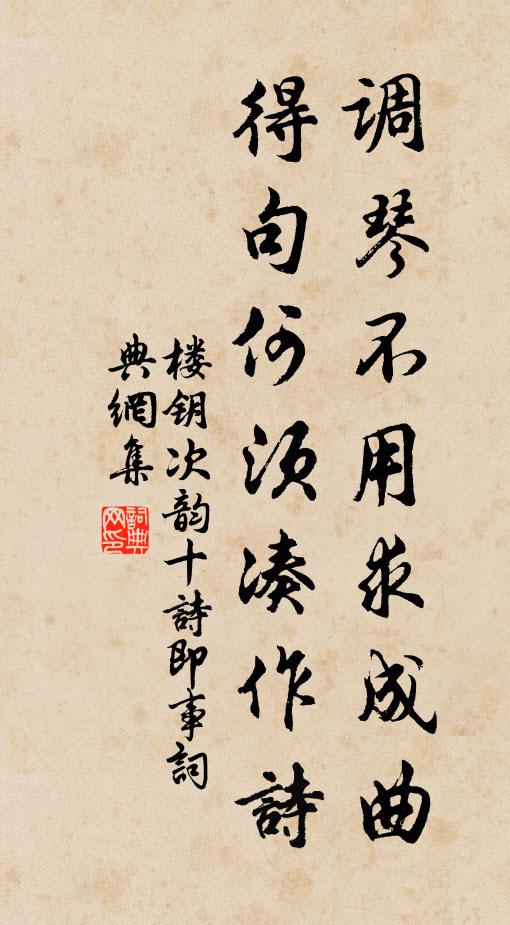 调琴不用求成曲
得句何须凑作詩
楼钥次韵十詩即事詞
典網集
詞典網印